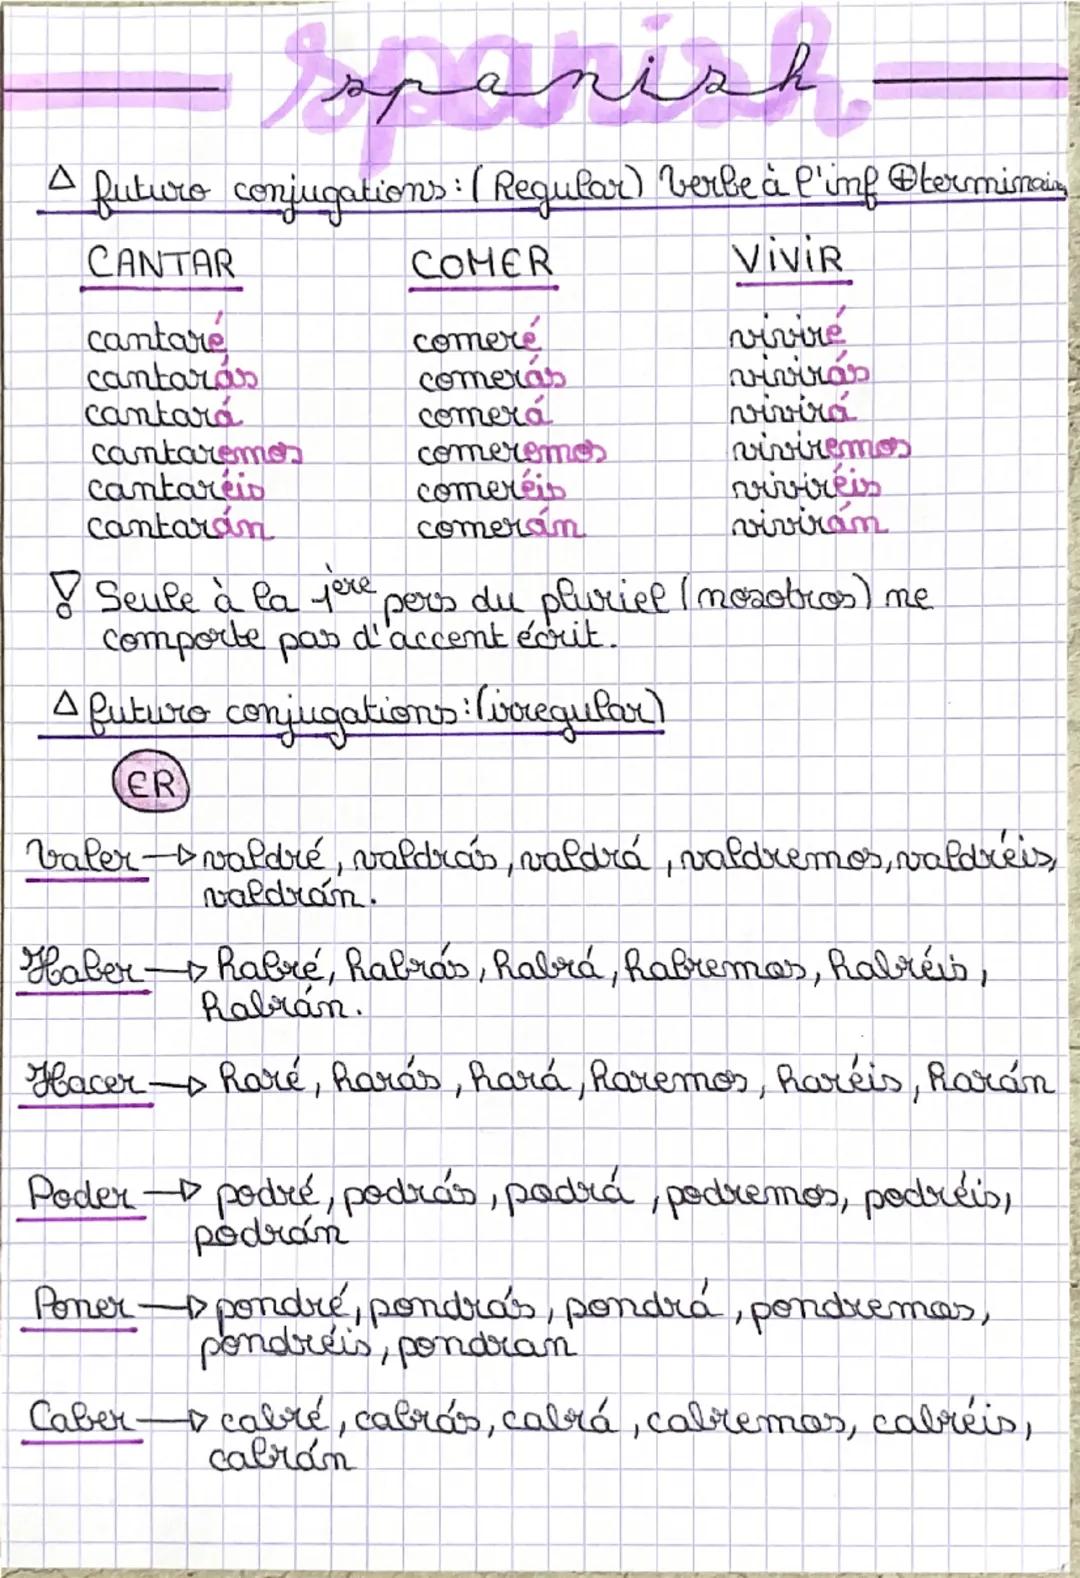 spanish
△ futuro conjugations : (Regular) Verbe à l'inf ⊕ terminais
CANTAR COMER ViViR
cantaré comeré viviré
cantarás comerás vivirás
cantará comerá vivirá
cantaremos comeremos viviremos
cantaréis comeréis viviréis
cantarán comerán vivirán
Seule à la 1ère pers du pluriel (nosotros) ne
comporte pas d'accent écrit.
△ futuro conjugations : (irregular)
ER
Valer → valdré, valdrás, valdrá, valdremos, valdréis,
valdrán.
Haber → habré, habrás, habrá, habremos, habréis,
habrán.
Hacer → haré, harás, hará, haremos, haréis, harán
Poder → podré, podrás, podrá, podremos, podréis,
podrán
Poner → pondré, pondrás, pondrá, pondremos,
pondréis, pondran
Caber → cabré, cabrás, cabrá, cabremos, cabréis,
cabrán